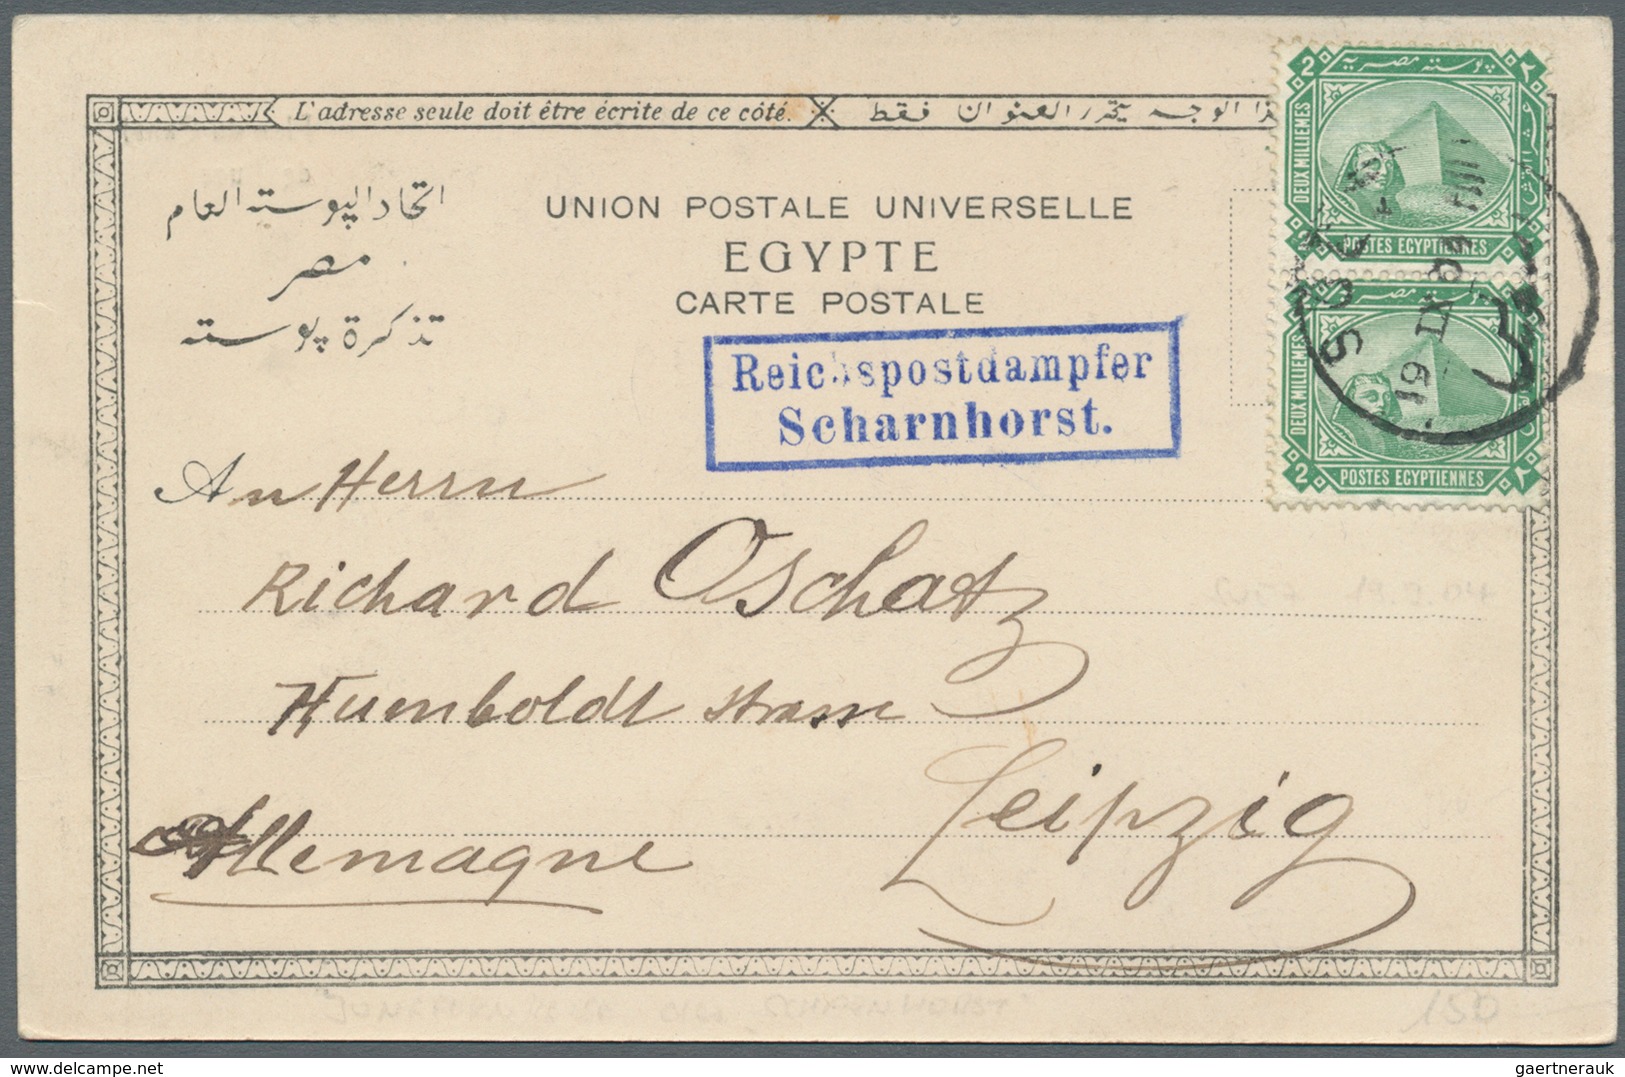 L'adresse seule doit être écrite de ce côté.
ذا الوجه يتحرر العنوان فقط
اتحاد البوسته العام
مصر
تذكرة بوسته
UNION POSTALE UNIVERSELLE
EGYPTE
CARTE POSTALE
Reichspostdampfer
Scharnhorst.
2 بوسته مصرية ٢
DEUX MILLIEMES
POSTES EGYPTIENNES
2 مصرية
DEUX MILLIEMES
2 POSTES EGYPTIENNES ٢
SUEZ
19 IX 04
An Herrn
Richard Oschatz
Humboldt strasse
Leipzig
Allemagne
SCHARNHORST
150
gaertnerauk